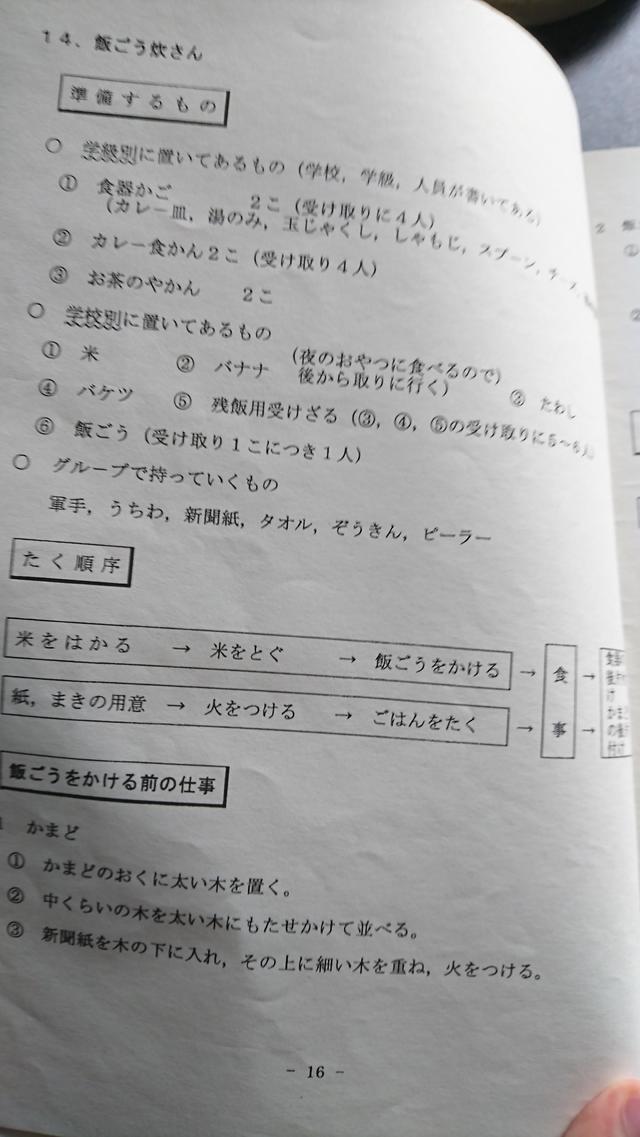 14．飯ごう炊さん
準備するもの
○ 学級別に置いてあるもの（学校，学級，人員が書いてある）
① 食器かご 2こ（受け取りに4人）
（カレー皿，湯のみ，玉じゃくし，しゃもじ，スプーン，
② カレー食かん2こ（受け取り4人）
③ お茶のやかん 2こ
○ 学校別に置いてあるもの
① 米 ② バナナ （夜のおやつに食べるので）
後から取りに行く） ③ たわし
④ バケツ ⑤ 残飯用受けざる（③，④，⑤の受け取りに5～6人）
⑥ 飯ごう（受け取り1こにつき1人）
○ グループで持っていくもの
軍手，うちわ，新聞紙，タオル，ぞうきん，ピーラー
たく順序
米をはかる → 米をとぐ → 飯ごうをかける → 食 →
紙，まきの用意 → 火をつける → ごはんをたく → 事 →
かまど
の後
付け
飯ごうをかける前の仕事
1 かまど
① かまどのおくに太い木を置く。
② 中くらいの木を太い木にもたせかけて並べる。
③ 新聞紙を木の下に入れ，その上に細い木を重ね，火をつける。
- 16 -
2
①
②